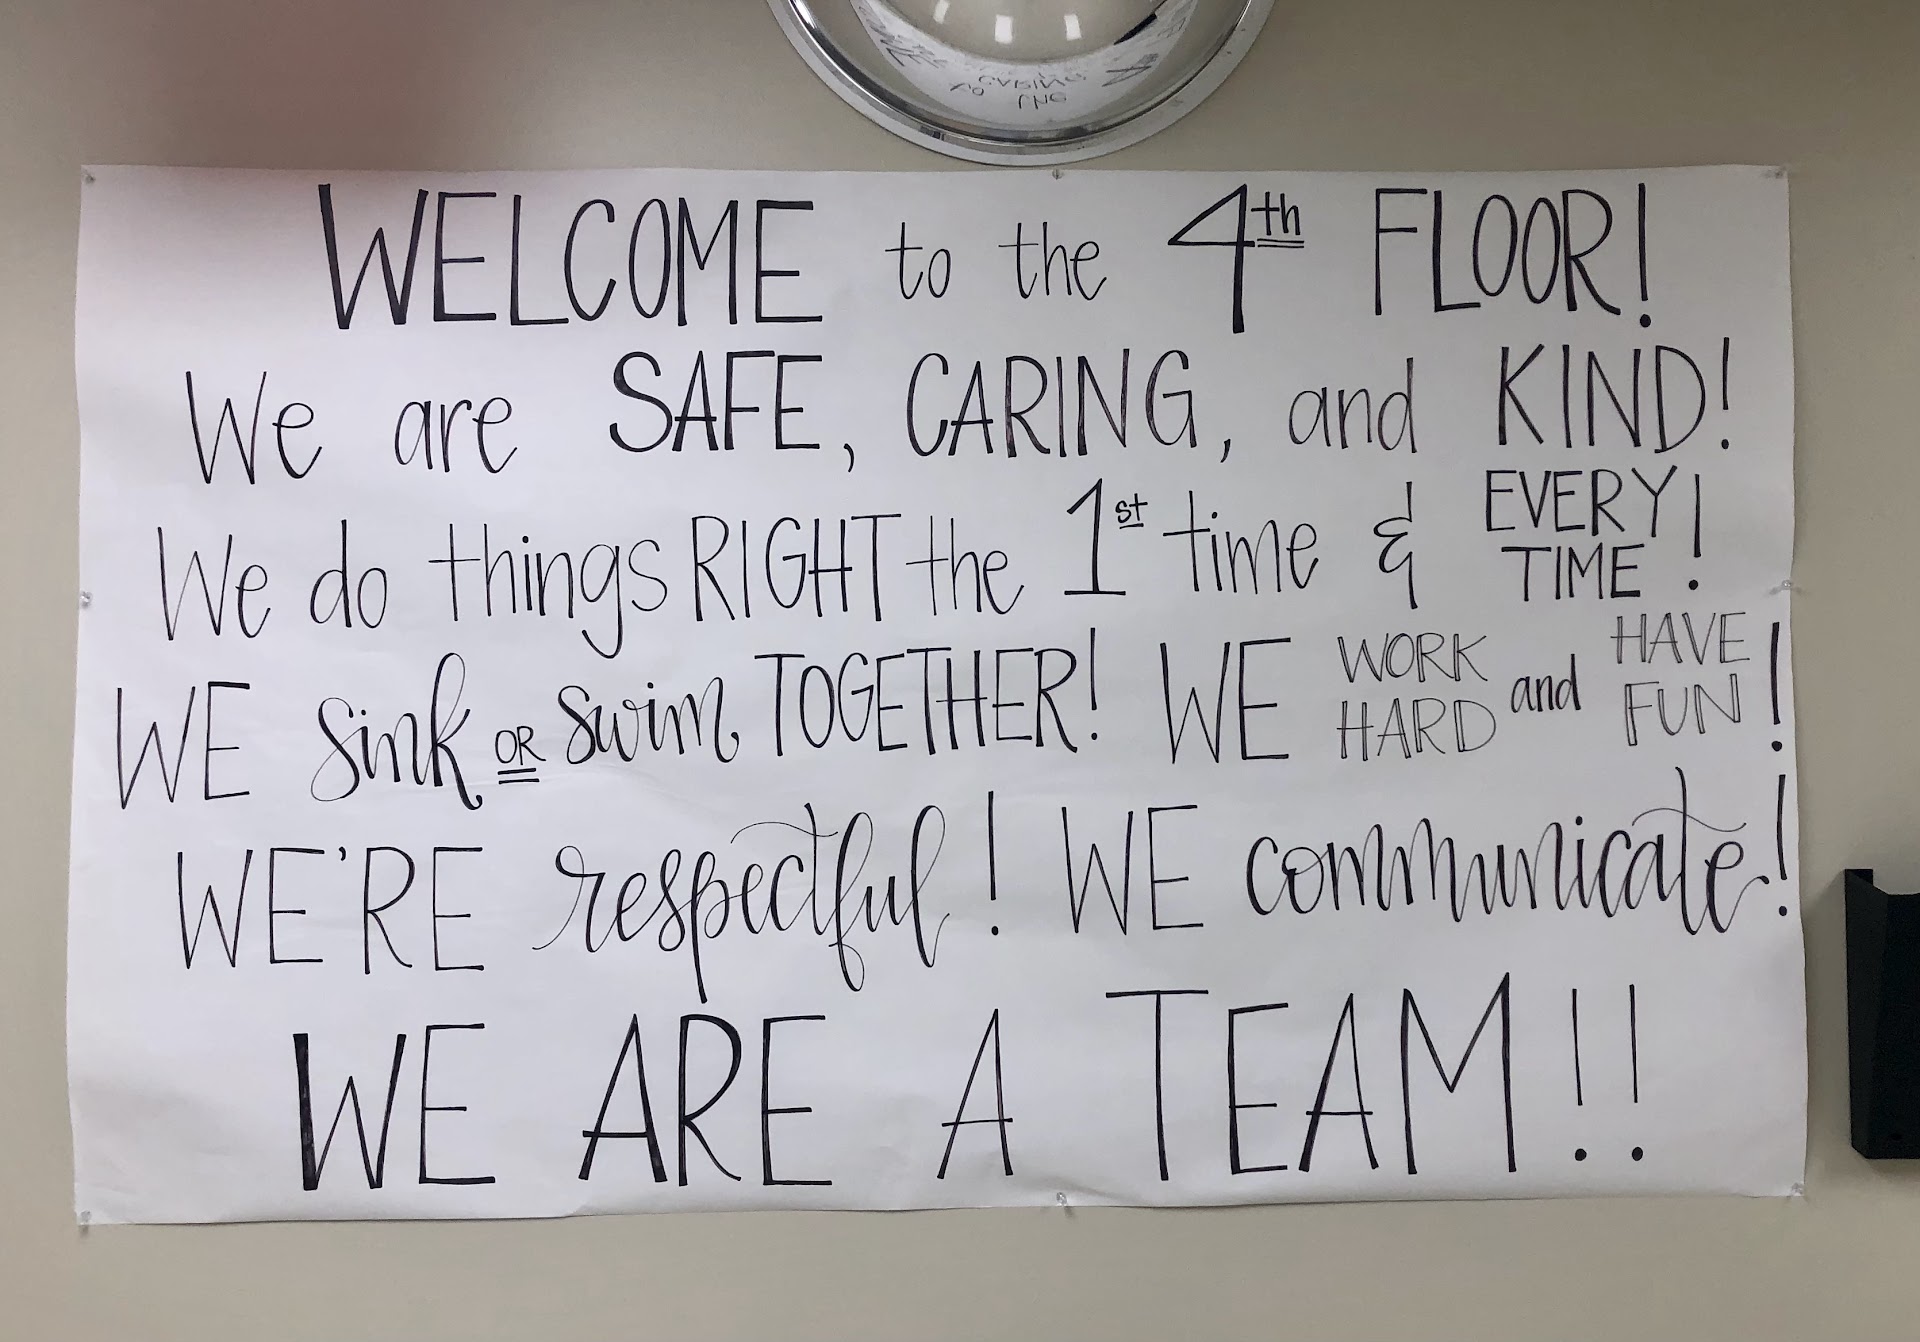 WELCOME to the 4th FLOOR!
We are SAFE, CARING, and KIND!
We do things RIGHT the 1st time & EVERY TIME!
WE sink OR swim TOGETHER! WE WORK HARD and HAVE FUN!
WE'RE respectful! WE communicate!
WE ARE A TEAM!!